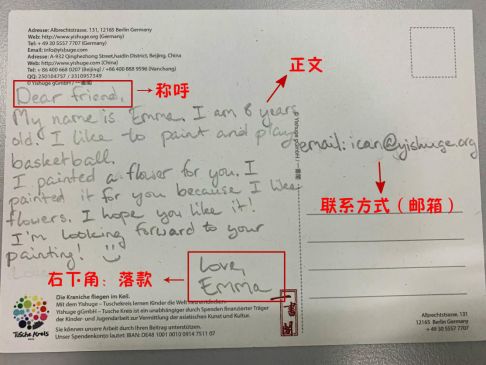 Adresse: Albrechtstrasse. 131, 12165 Berlin Germany
Web: http://www.yishuge.com/
Tel: + 49 30 5557 7707 (Germany)
Email: info@yishuge.com
Adresse: A-932 Qinghezhong Street, haidin District, Beijing, China
Web: http://www.yishuge.com/ (China)
Tel: + 86 400 668 0207 (Beijing) / +86 400 888 9596 (Nanchang)
QQ: 250104757 / 3310957349
© Yishuge gGmbH / 一書閣
Dear friend,
称呼
正文
My name is Emma. I am 8 years
old. I like to paint and play
basketball.
I painted a flower for you. I
painted it for you because I like
flowers. I hope you like it!
I'm looking forward to your
painting!
Love,
Emma
右下角：落款
email: ican@yishuge.org
联系方式（邮箱）
Tusche Kreis
Die Kraniche fliegen im Keil.
Mit dem Yishuge – Tuschekreis lernen Kinder die Welt neu entdecken.
Yishuge gGmbH – Tusche Kreis ist ein unabhängiger durch Spenden finanzierter Träger
der Kinder- und Jugendarbeit zur Vermittlung der asiatischen Kunst und Kultur.
Sie können unsere Arbeit durch Ihren Beitrag unterstützen.
Unser Spendenkonto lautet: IBAN: DE48 1001 0010 0914 7511 07
Albrechtstrasse, 131
12165 Berlin, Germany
+ 49 30 5557 7707